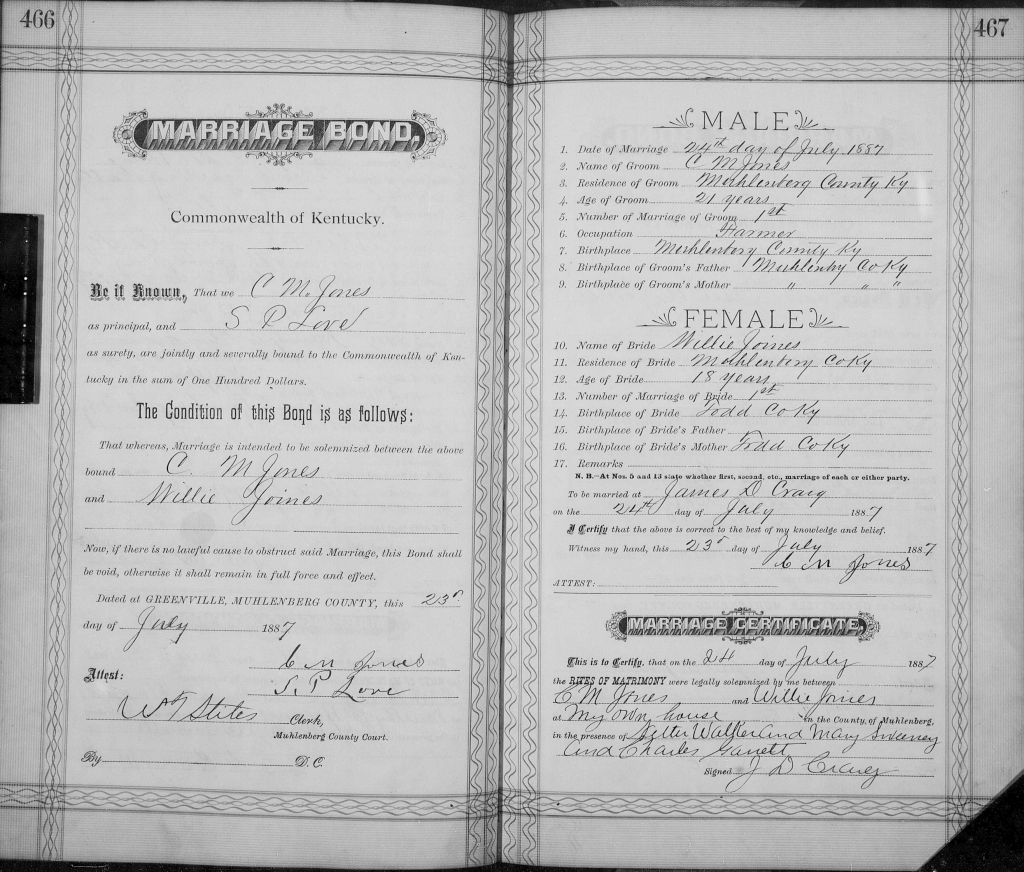 466
MARRIAGE BOND,
Commonwealth of Kentucky.
Be it Known, That we C M. Jones
as principal, and S P Love
as surety, are jointly and severally bound to the Commonwealth of Ken-
tucky in the sum of One Hundred Dollars.
The Condition of this Bond is as follows:
That whereas, Marriage is intended to be solemnized between the above
bound C. M Jones
and Willie Joines
Now, if there is no lawful cause to obstruct said Marriage, this Bond shall
be void, otherwise it shall remain in full force and effect.
Dated at GREENVILLE, MUHLENBERG COUNTY, this 23d
day of July 1887
C M Jones
Attest: S. P Love
W T Stiles Clerk,
Muhlenberg County Court.
By D. C.
467
MALE
1. Date of Marriage 24th day of July 1887
2. Name of Groom C M Jones
3. Residence of Groom Muhlenberg County Ky
4. Age of Groom 21 years
5. Number of Marriage of Groom 1st
6. Occupation Farmer
7. Birthplace Muhlenberg County Ky
8. Birthplace of Groom's Father Muhlenby Co Ky
9. Birthplace of Groom's Mother " " "
FEMALE
10. Name of Bride Willie Joines
11. Residence of Bride Muhlenberg Co Ky
12. Age of Bride 18 years
13. Number of Marriage of Bride 1st
14. Birthplace of Bride Todd Co Ky
15. Birthplace of Bride's Father
16. Birthplace of Bride's Mother Todd Co Ky
17. Remarks
N. B.—At Nos. 5 and 13 state whether first, second, etc., marriage of each or either party.
To be married at James D Craig
on the 24th day of July 1887
I Certify that the above is correct to the best of my knowledge and belief.
Witness my hand, this 23d day of July 1887
C M Jones
ATTEST:
MARRIAGE CERTIFICATE,
This is to Certify, that on the 24 day of July 1887
the RITES OF MATRIMONY were legally solemnized by me between
C M Jones and Willie Joines
at My own house in the County of Muhlenberg,
in the presence of Walker and Mary Sweeney
and Charles Garrett
Signed J D Craig